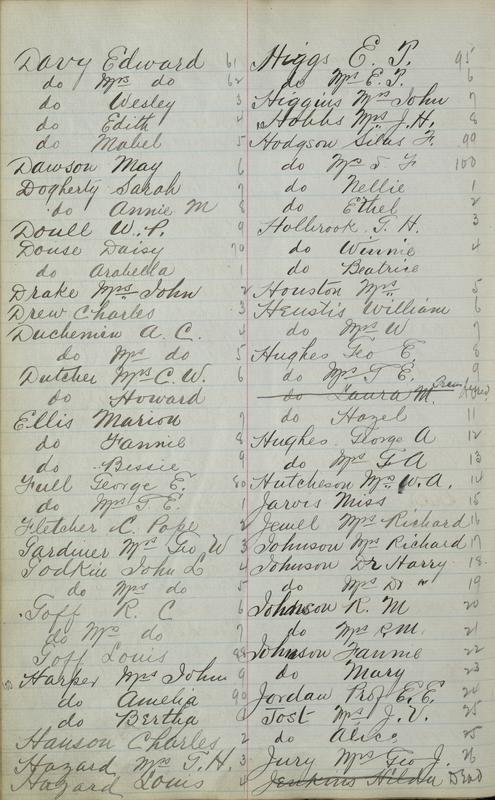 Davy Edward 61
do Mrs do 62
do Wesley 3
do Edith 4
do Mabel 5
Dawson May 6
Dogherty Sarah 7
do Annie M 8
Doull W. P. 9
Douse Daisy 70
do Arabella 1
Drake Mrs John 2
Drew Charles 3
Duchemin A. C. 4
do Mrs do 5
Dutcher Mrs C. W. 6
do Howard
Ellis Marion 7
do Fannie 8
do Bessie 9
Full George E. 80
do Mrs G. E. 1
Fletcher A. Pope 2
Gardiner Mrs Geo W 3
Godkin John L 4
do Mrs do 5
Goff R. C 6
do Mrs do 7
Goff Louis 88
Harper Mrs John 9
do Amelia 90
do Bertha
Hanson Charles 2
Hazard Mrs G. H. 3
Hazard Louis 4
Higgs E. P. 95
do Mrs E. P. 6
Higgins Mrs John 7
Hobbs Mrs J. H. 8
Hodgson Silas F. 99
do Mrs S F 100
do Nellie 1
do Ethel 2
Holbrook G. H. 3
do Winnie 4
do Beatrice
Houston Mrs 5
Heustis William 6
do Mrs W 7
Hughes Geo E 8
do Mrs G E. 9
do Laura M.
do Hazel 11
Hughes George A 12
do Mrs G A 13
Hutcheson Mrs W. A. 14
Jarvis Miss 15
Jewell Mrs Richard 16
Johnson Mrs Richard 17
Johnson Dr Harry 18
do Mrs Dr " 19
Johnson R. M 20
do Mrs R M. 21
Johnson Fannie 22
do Mary 23
Jordan Prof E. E. 24
Jost Mrs J. V. 25
do Alice 25
Jury Mrs Geo J. 26
Jenkins Hilda Dead